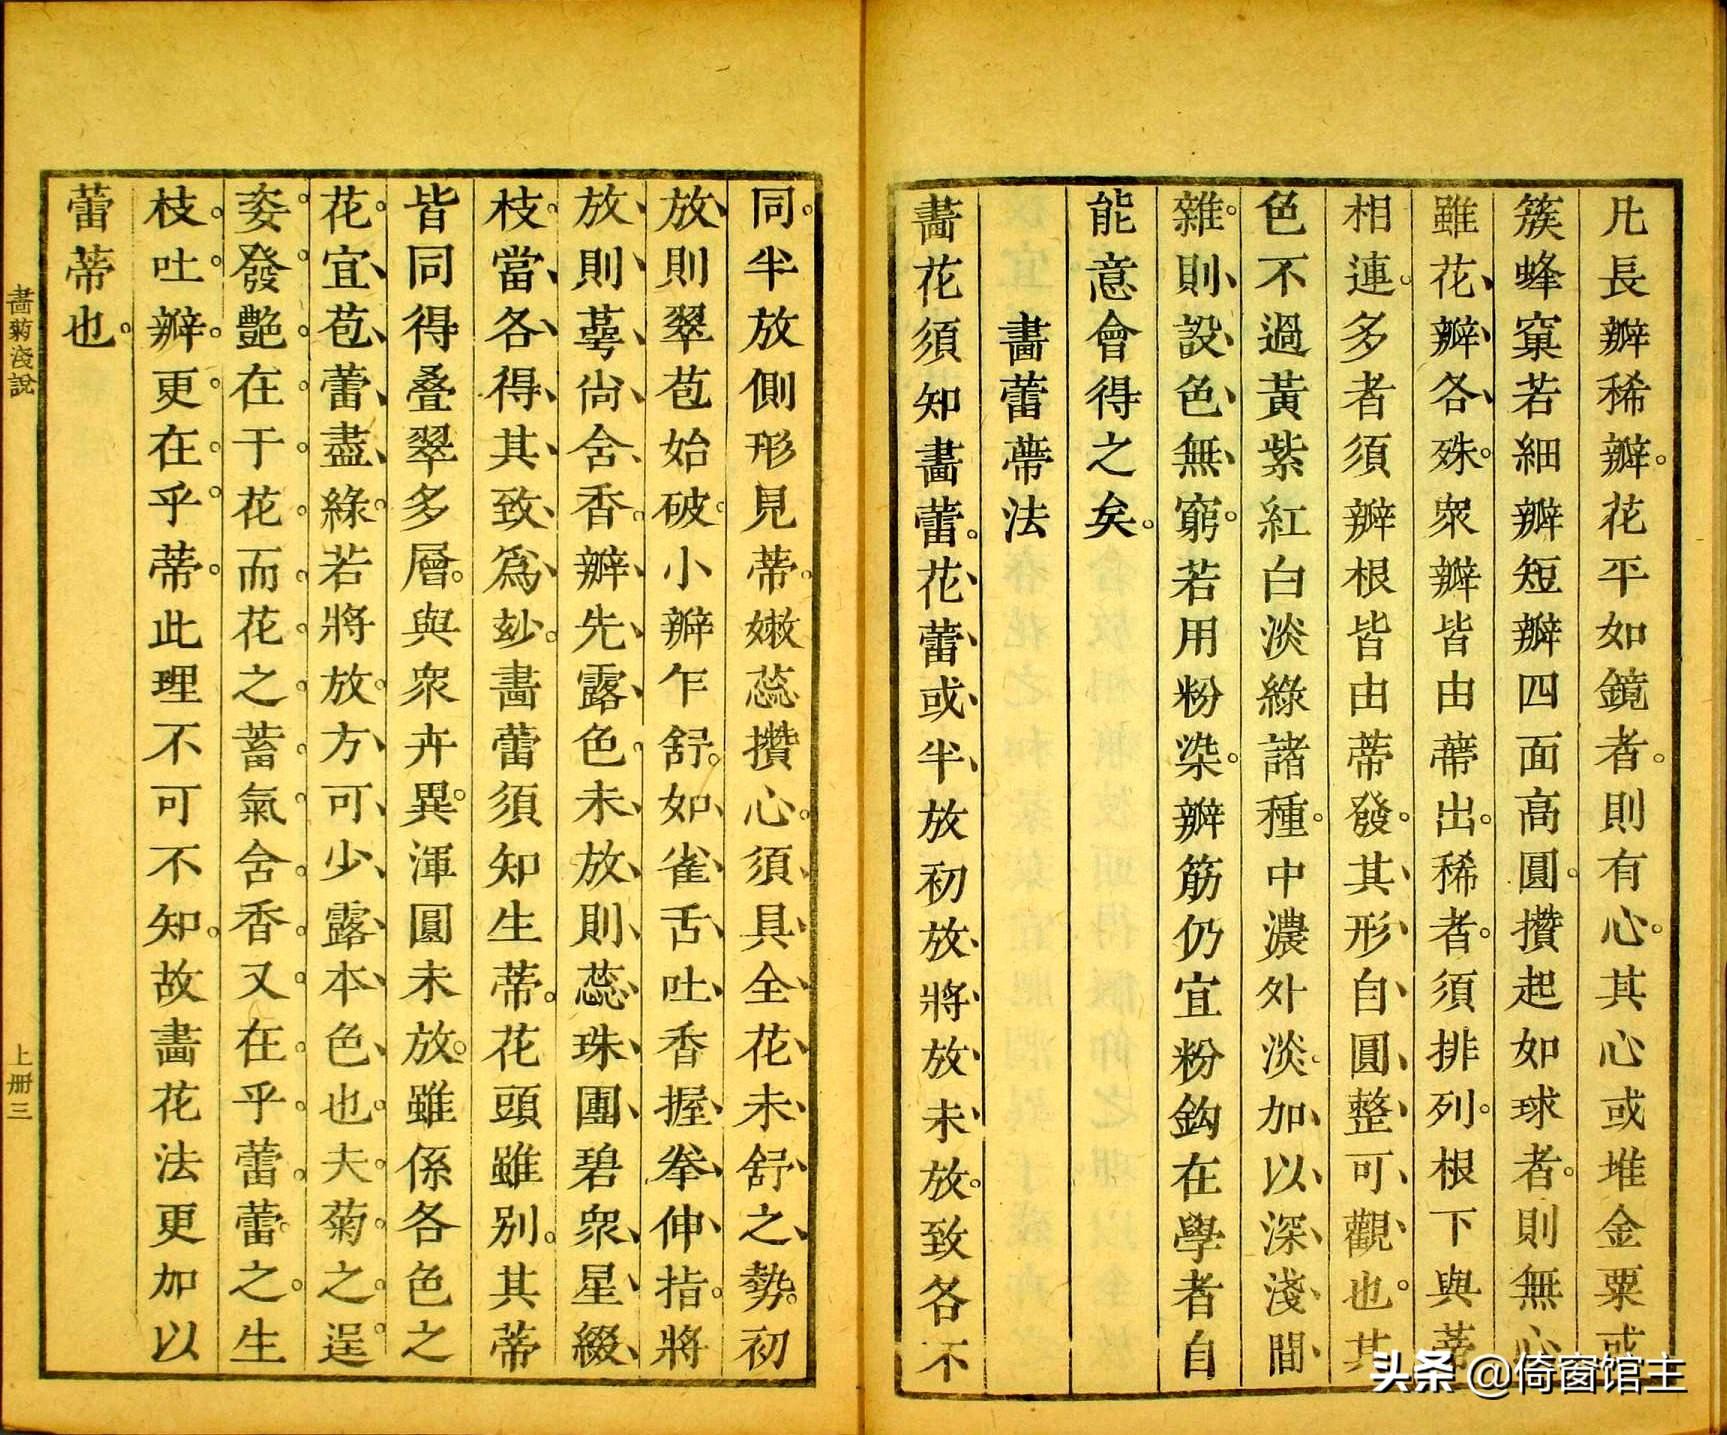 凡長瓣稀瓣。花平如鏡者。則有心。其心或堆金粟或
簇蜂窠若細瓣短瓣四面高圓。攢起如球者。則無心
雖花瓣各殊。衆瓣皆由蒂出。稀者。須排列。根下與蒂
相連。多者須瓣根皆由蒂發。其形自圓整可觀也。其
色不過黃紫紅白淡綠諸種。中濃外淡。加以深淺間
雜。則設色無窮。若用粉染。瓣筋仍宜粉鈎在學者自
能意會得之矣。
畫蕾蔕法
畫花須知畫蕾。花蕾或半放初放將放未放。致各不
同。半放側形見蒂。嫩蕊攢心。須具全花未舒之勢。初
放則翠苞始破。小瓣乍舒。如雀舌吐香握拳伸指。將
放則萼尚含香。瓣先露色。未放則蕊珠團碧衆星綴
枝。當各得其致爲玅。畫蕾須知生蒂。花頭雖別。其蒂
皆同得叠翠多層。與衆卉異。渾圓未放。雖係各色之
花。宜苞蕾盡綠。若將放。方可少露本色也。夫菊之逞
姿發艷在于花而花之蓄氣含香又在乎蕾。蕾之生
枝吐瓣。更在乎蒂。此理不可不知。故畫花法更加以
蕾蒂也。
畫菊淺說
上册三
头条 @倚窗馆主